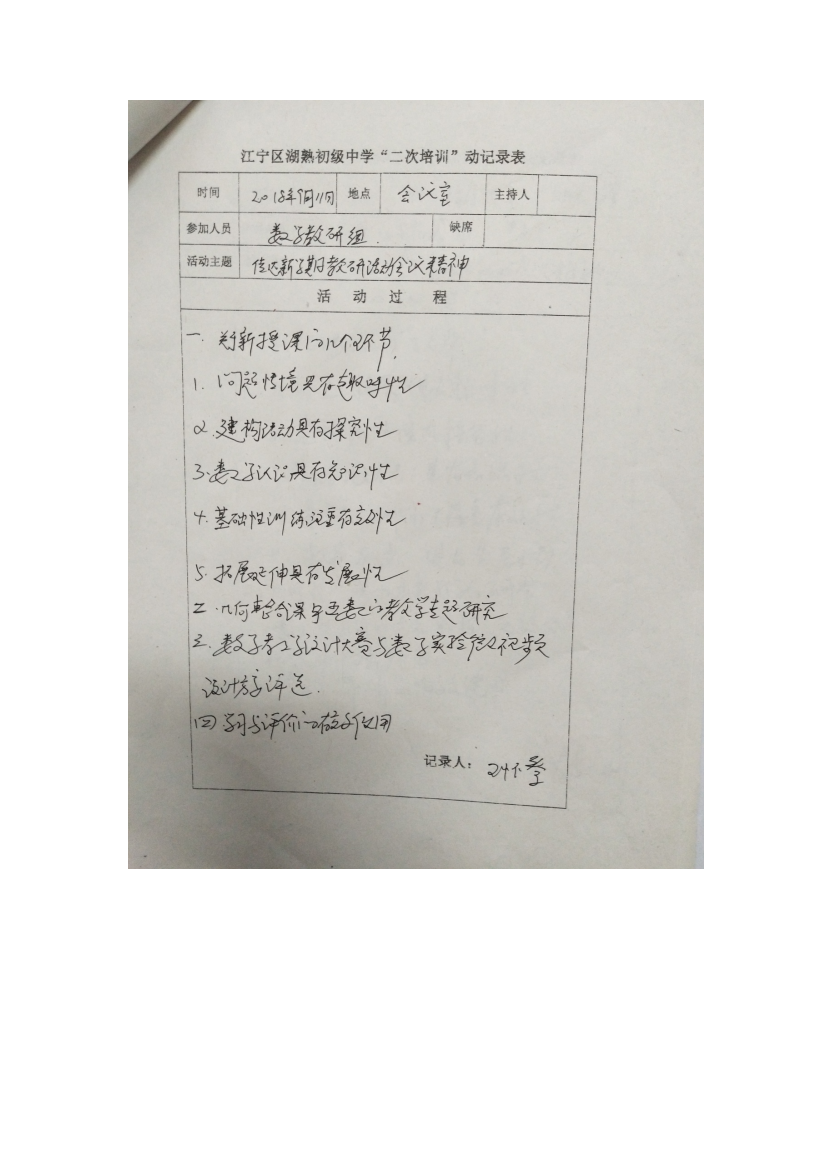 江宁区湖熟初级中学“二次培训”动记录表
时间 2018年9月11日 地点 会议室 主持人
参加人员 数学教研组. 缺席
活动主题 传达新学期教研活动会议精神
活 动 过 程
一. 新授课的几个环节.
1. 问题情境具有趣味性
2. 建构活动具有探究性
3. 数学认识具有知识性
4. 基础性训练注重有效性
5. 拓展延伸具有发展性
二. 几何整合课 教学专题研究
三. 数学教学设计大赛与数学实验微视频
设计方案评选.
四 学习与评价的有效使用
记录人: